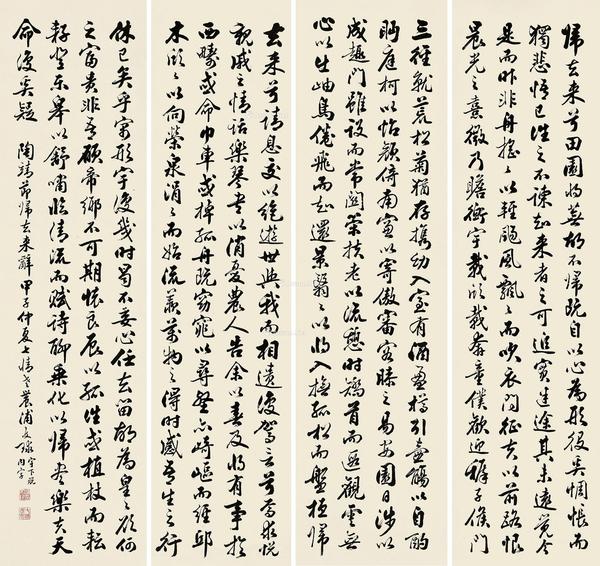 歸去來兮田園將蕪胡不歸既自以心為形役奚惆悵而
獨悲悟已往之不諫知來者之可追實迷途其未遠覺今
是而昨非舟搖々以輕颺風飄々而吹衣問征夫以前路恨
晨光之熹微乃瞻衡宇載欣載奔童僕歡迎稚子候門
三徑就荒松菊猶存攜幼入室有酒盈樽引壺觴以自酌
眄庭柯以怡顏倚南窗以寄傲審容膝之易安園日涉以
成趣門雖設而常關策扶老以流憩時矯首而遐觀雲無
心以出岫鳥倦飛而知還景翳々以將入撫孤松而盤桓歸
去來兮請息交以絕遊世與我而相遺復駕言兮焉求悅
親戚之情話樂琴書以消憂農人告余以春及將有事於
西疇或命巾車或棹孤舟既窈窕以尋壑亦崎嶇而經邱
木欣々以向榮泉涓々而始流羨萬物之得時感吾生之行
休已矣乎寓形宇復幾時曷不委心任去留胡為皇々欲何
之富貴非吾願帝鄉不可期懷良辰以孤往或植杖而耘
耔登東皋以舒嘯臨清流而賦詩聊乘化以歸盡樂夫天
命復奚疑 陶靖節歸去來辭 甲子仲夏 宇下脫內字